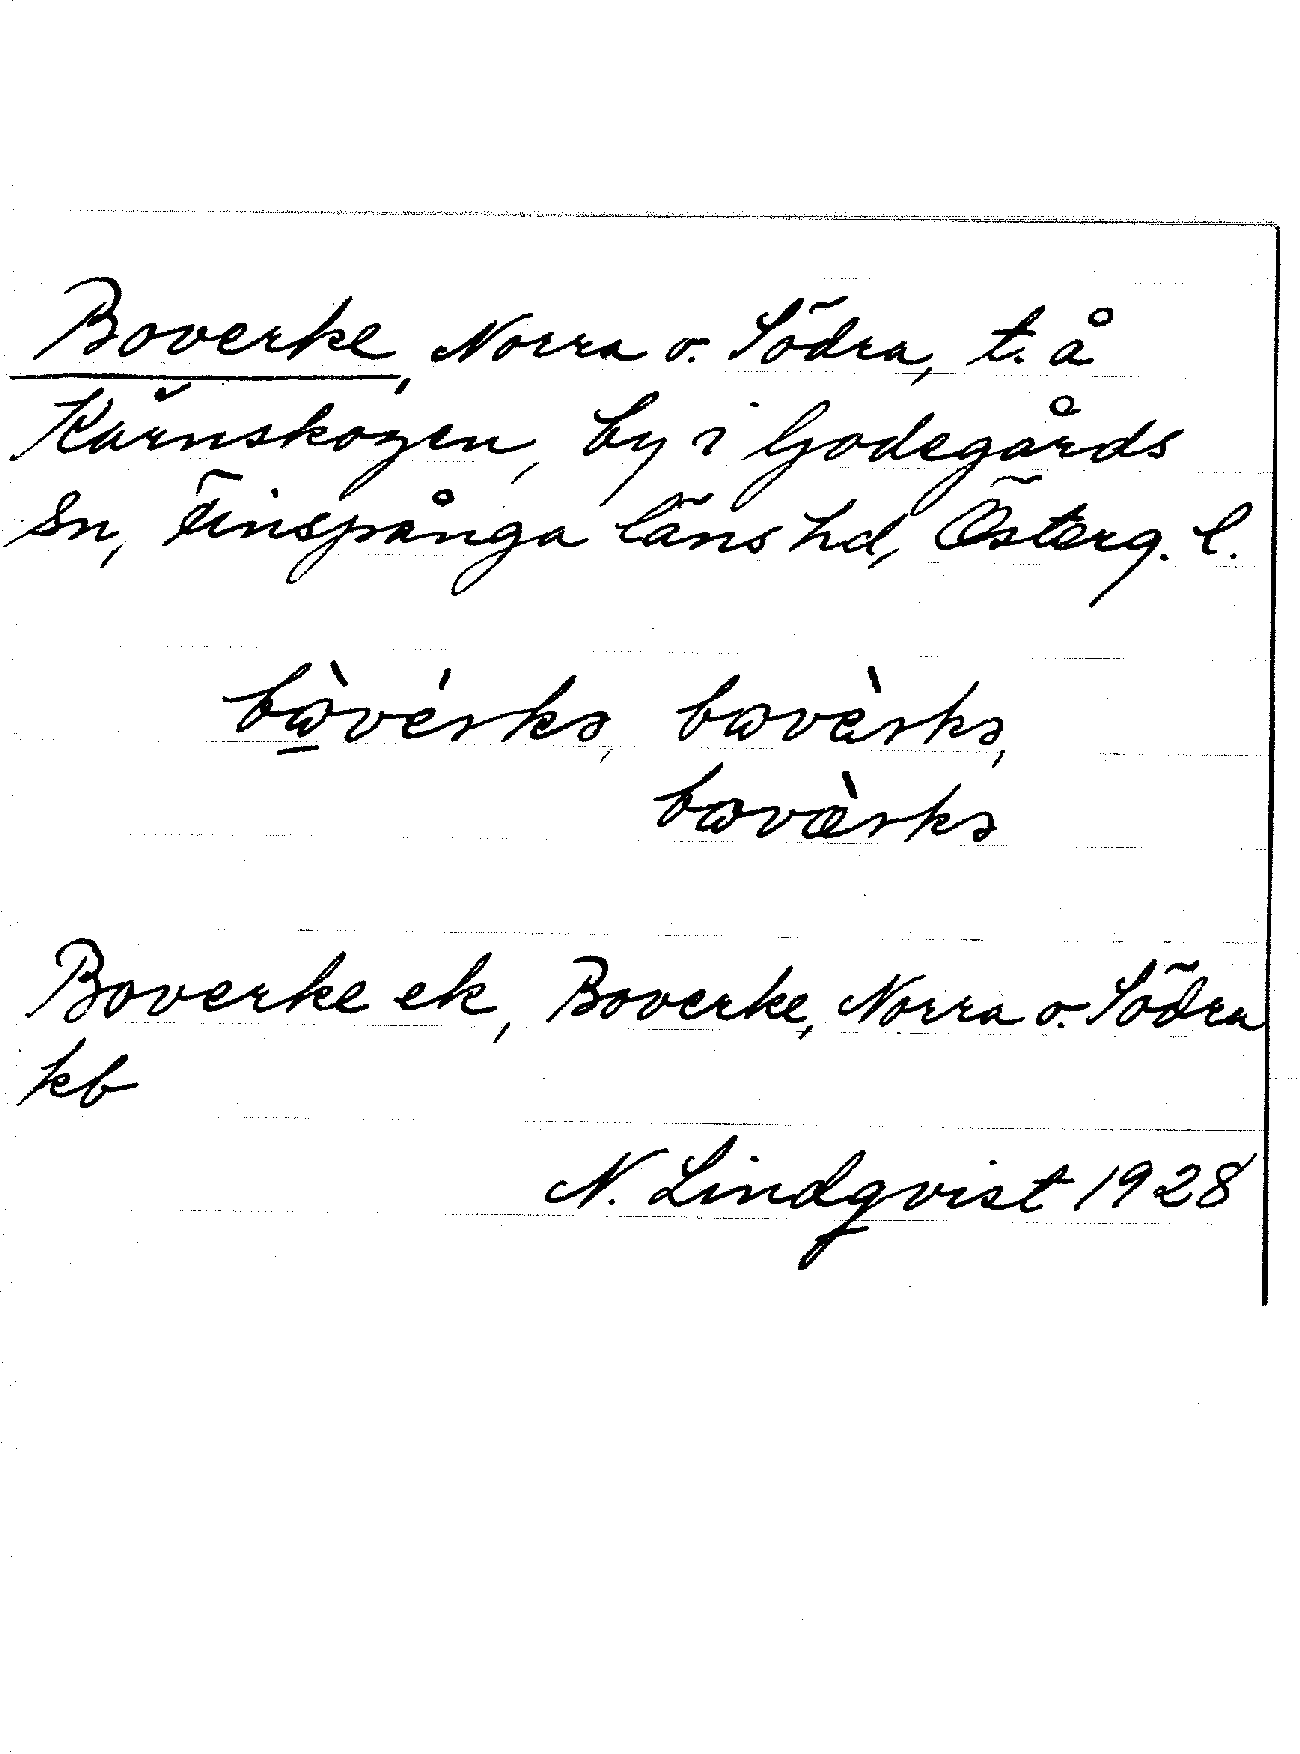 Boverke, Norra o. Södra, t. å
Kärnskogen, by i Godegårds
sn, Finspånga läns hd, Österg. l.
bɷ̀vérkə, bɷvèrkə,
bɷvæ̀rkə
Boverke ek, Boverke, Norra o. Södra
kb
N. Lindqvist 1928